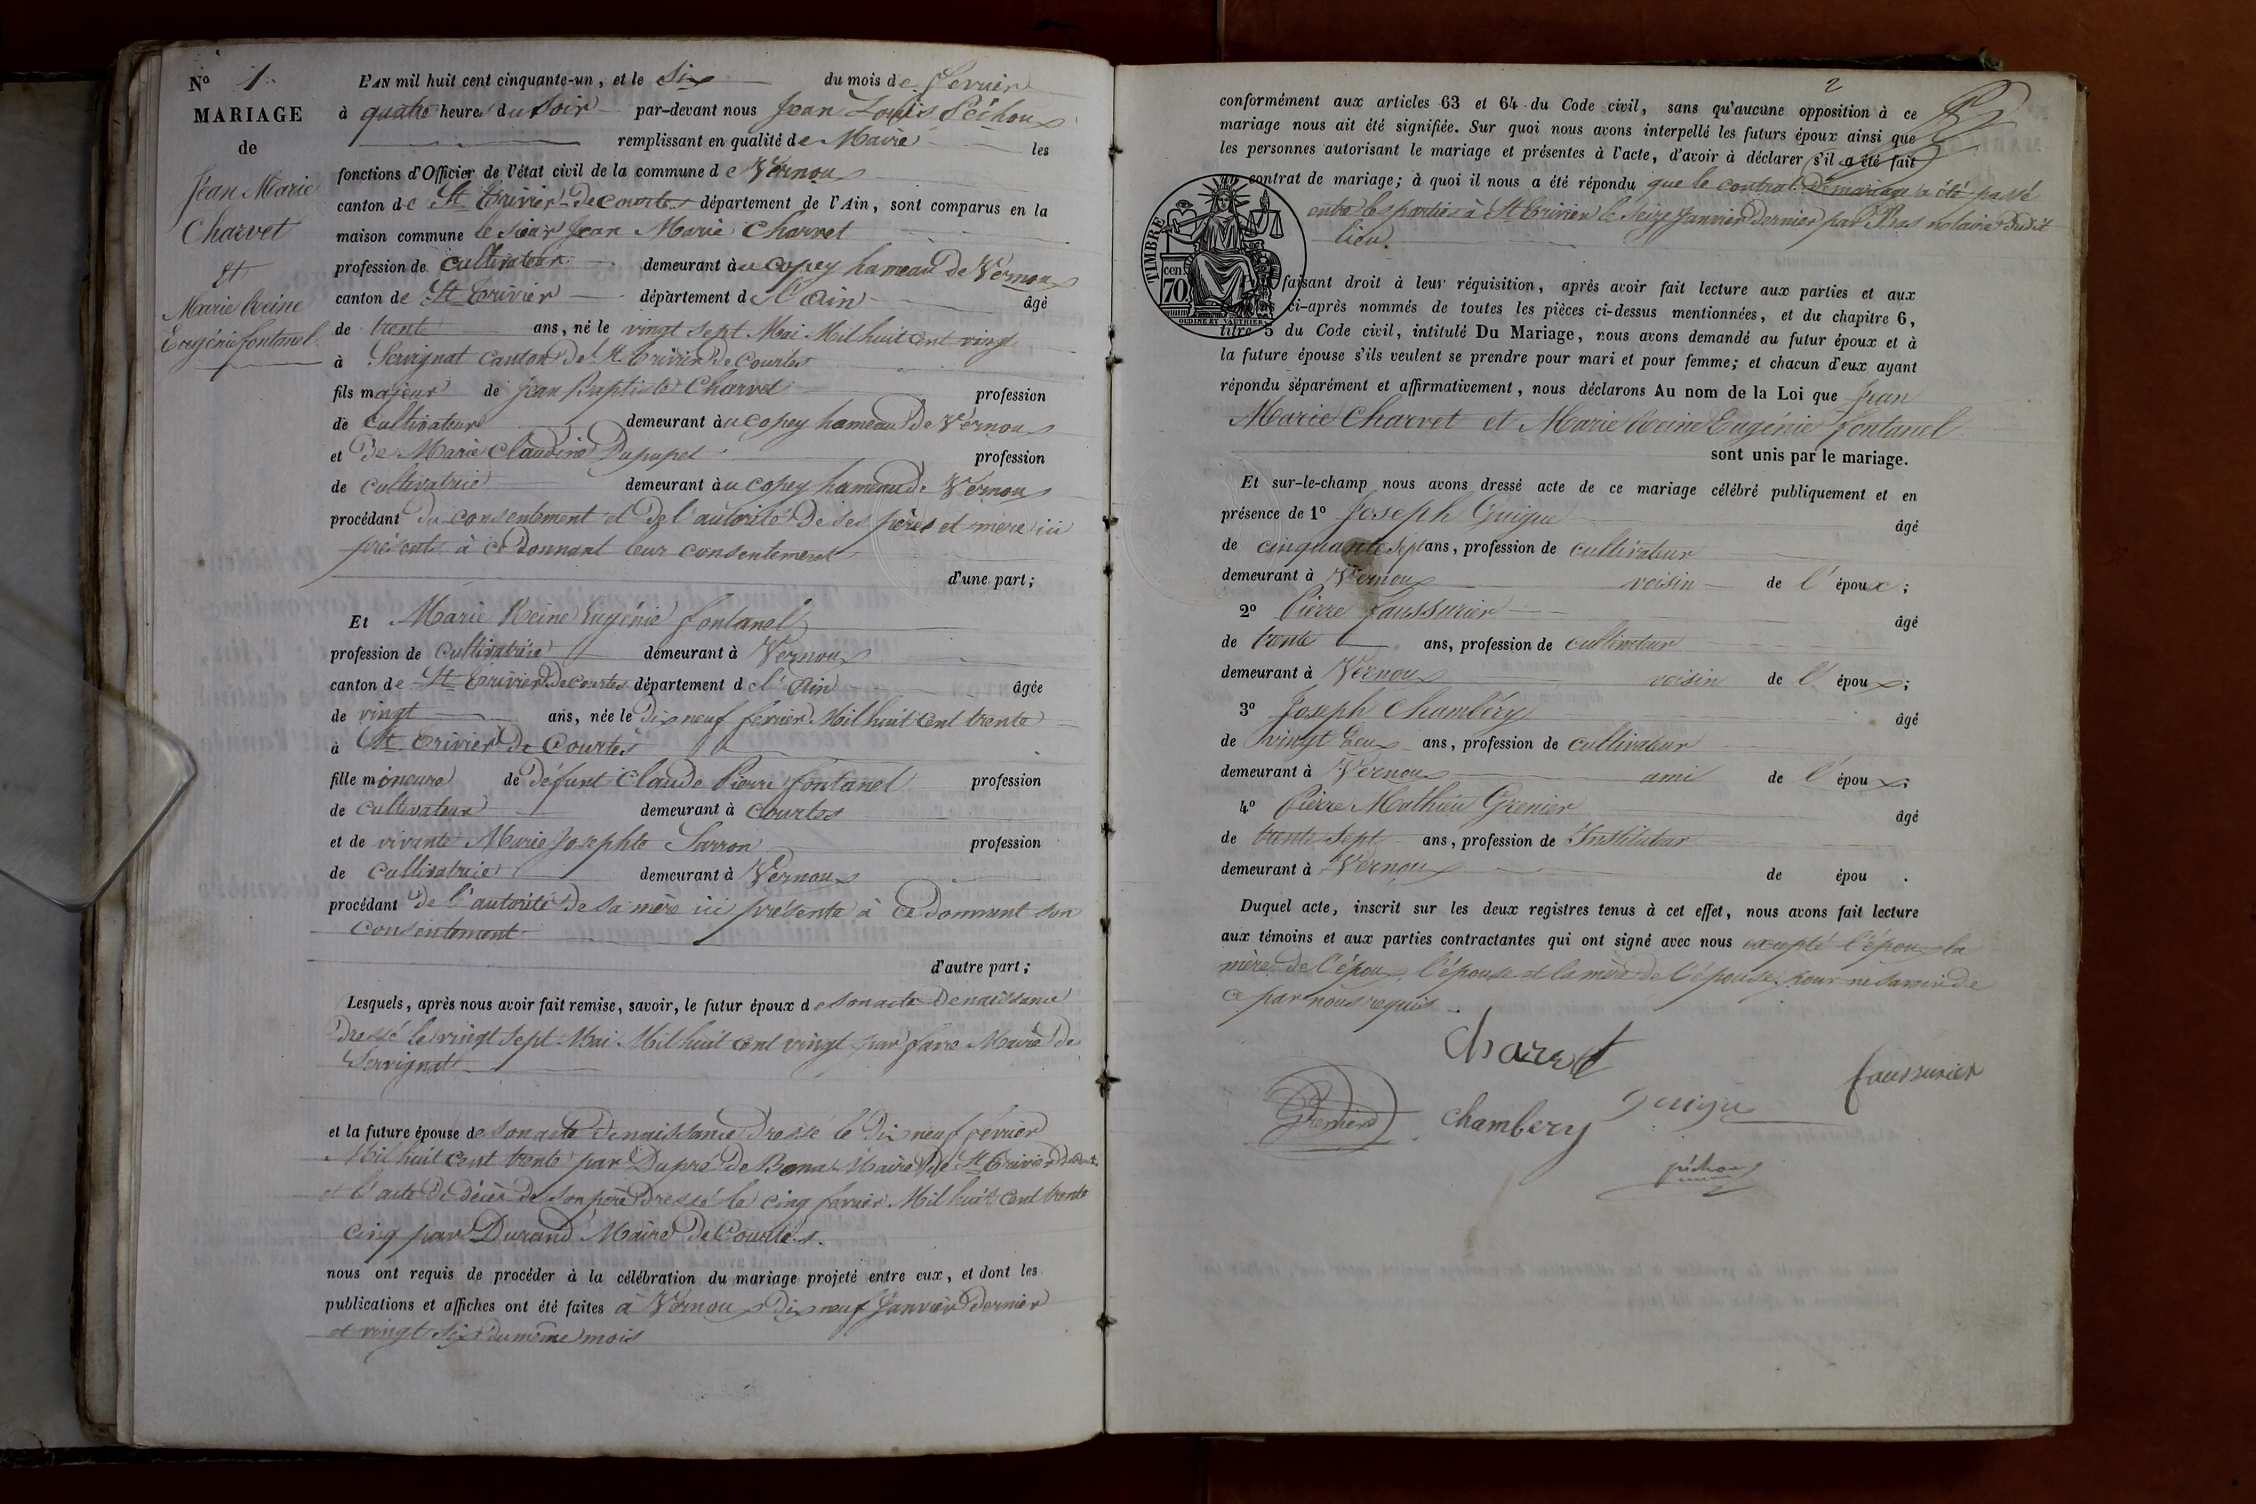 Nº 1.
MARIAGE
de
Jean Marie
Charvet
Et
Marie Reine
Eugénie fontanel
L'AN mil huit cent cinquante-un, et le Six du mois de fevrier
à quatre heures du Soir par-devant nous Jean Louis Péchoux
remplissant en qualité de Maire les
fonctions d'Officier de l'état civil de la commune de Vernoux
canton de St Trivier De courtes département de l'Ain, sont comparus en la
maison commune le sieur Jean Marie Charvet
profession de cultivateur demeurant au copey hameau De Vernoux
canton de St Trivier département de l'Ain âgé
de trente ans, né le vingt sept Mai Mil huit cent vingt
à Servignat canton de St Trivier De Courtes
fils majeur de Jean Baptiste Charvet profession
de cultivateur demeurant au copey hameau De Vernoux
et De Marie Claudine Dupupet profession
de cultivatrice demeurant au copey hameau De Vernoux
procédant du consentement et De l'autorité De ses pères et mère ici
présents à ce Donnant leur consentement
d'une part;
Et Marie Reine Eugénie fontanel
profession de cultivatrice demeurant à Vernoux
canton de St Trivier De Courtes département de l'Ain âgée
de vingt ans, née le Dix neuf fevrier Mil huit cent trente
à St Trivier De Courtes
fille mineure de Défunt Claude Pierre fontanel profession
de cultivateur demeurant à Courtes
et de vivante Marie Josephte Sarron profession
de cultivatrice demeurant à Vernoux
procédant De l'autorité De sa mère ici présente à ce Donnant son
consentement
d'autre part;
Lesquels, après nous avoir fait remise, savoir, le futur époux de son acte De naissance
Dressé le vingt sept Mai Mil huit cent vingt par favre Maire De
Servignat
et la future épouse de son acte De naissance Dressé le Dix neuf février
Mil huit cent trente par Dupré De Bona Maire De St Trivier De Courtes
et l'acte De Décès De son père Dressé le cinq fevrier Mil huit cent trente
cinq par Durand Maire De Courtes.
nous ont requis de procéder à la célébration du mariage projeté entre eux, et dont les
publications et affiches ont été faites à Vernoux Dix neuf Janvier Dernier
et vingt six du même mois
2
conformément aux articles 63 et 64 du Code civil, sans qu'aucune opposition à ce
mariage nous ait été signifiée. Sur quoi nous avons interpellé les futurs époux ainsi que
les personnes autorisant le mariage et présentes à l'acte, d'avoir à déclarer s'il a été fait
contrat de mariage; à quoi il nous a été répondu que le contrat De mariage a été passé
entre les parties à St Trivier le Seize Janvier Dernier par Bas notaire Dudit
lieu.
TIMBRE
cen.
70
OUDINE ET VAUTHIER
faisant droit à leur réquisition, après avoir fait lecture aux parties et aux
ci-après nommés de toutes les pièces ci-dessus mentionnées, et du chapitre 6,
titre 5 du Code civil, intitulé Du Mariage, nous avons demandé au futur époux et à
la future épouse s'ils veulent se prendre pour mari et pour femme; et chacun d'eux ayant
répondu séparément et affirmativement, nous déclarons Au nom de la Loi que Jean
Marie Charvet et Marie Reine Eugénie fontanel
sont unis par le mariage.
Et sur-le-champ nous avons dressé acte de ce mariage célébré publiquement et en
présence de 1º Joseph Guigue âgé
de cinquante sept ans, profession de cultivateur
demeurant à Vernoux voisin de l'époux;
2º Pierre faussurier âgé
de trente ans, profession de cultivateur
demeurant à Vernoux voisin de l'époux;
3º Joseph Chambéry âgé
de vingt Deux ans, profession de cultivateur
demeurant à Vernoux ami de l'époux;
4º Pierre Mathieu Grenier âgé
de trente sept ans, profession de Instituteur
demeurant à Vernoux de épou .
Duquel acte, inscrit sur les deux registres tenus à cet effet, nous avons fait lecture
aux témoins et aux parties contractantes qui ont signé avec nous excepté l'époux la
mère De l'époux, l'épouse et la mère De l'épouse, pour ne savoir De
ce par nous requis.
Charvet
faussurier
Grenier
Chambery
Guigue
péchoux